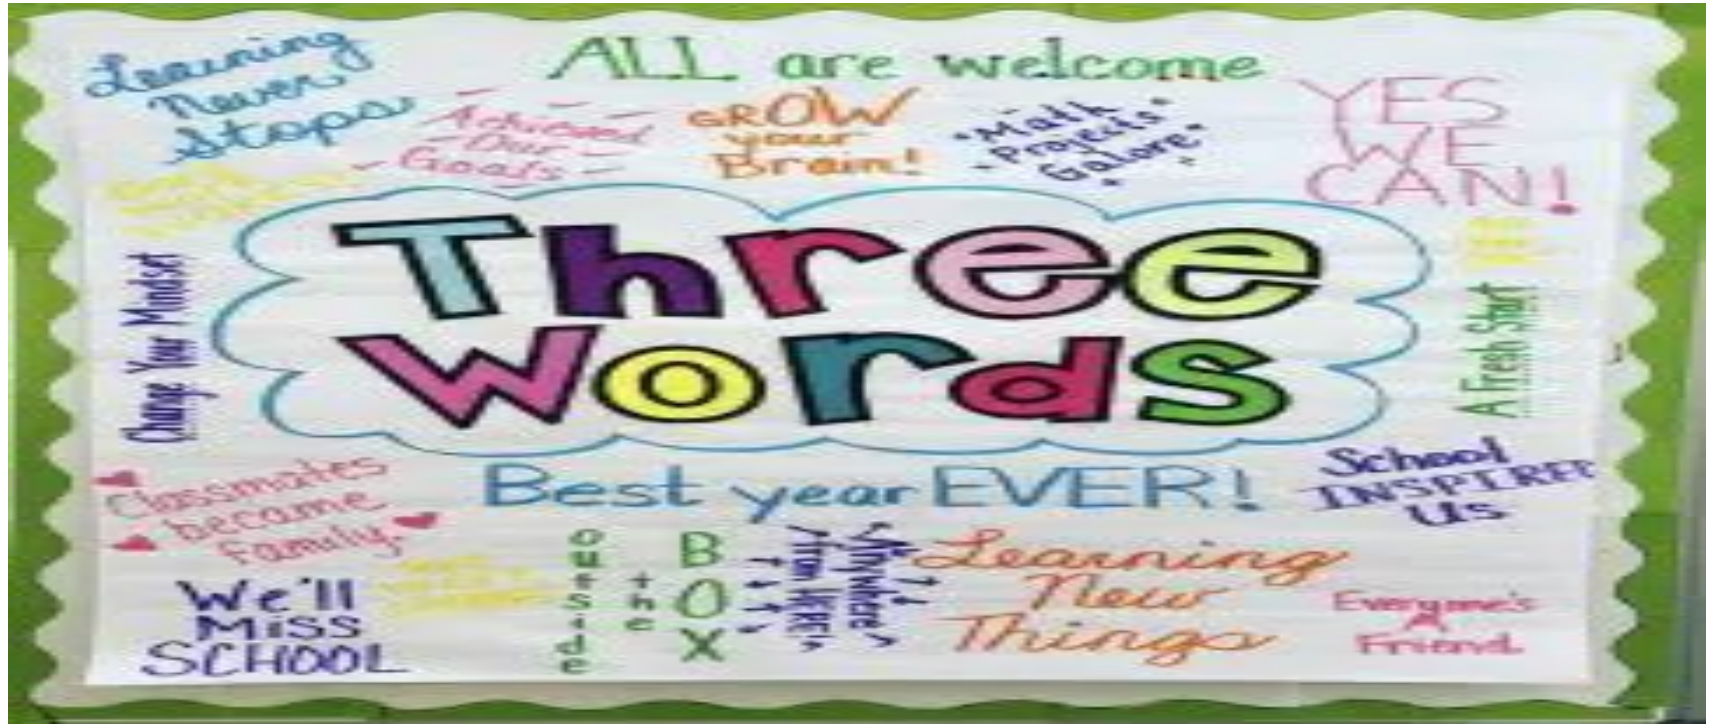 Learning
Never
Stops
ALL are welcome
Achieved
Our
Goals
GROW
your
Brain!
"Math
Projects"
Galore"
YES
WE
CAN!
Three
Words
Change Your Mindset
A Fresh Start
Classmates
became
Family
Best year EVER!
School
INSPIRED
Us
We'll
Miss
SCHOOL
outside
the
BOX
Anywhere
from HERE
Learning
New
Things
Everyone's
A
Friend